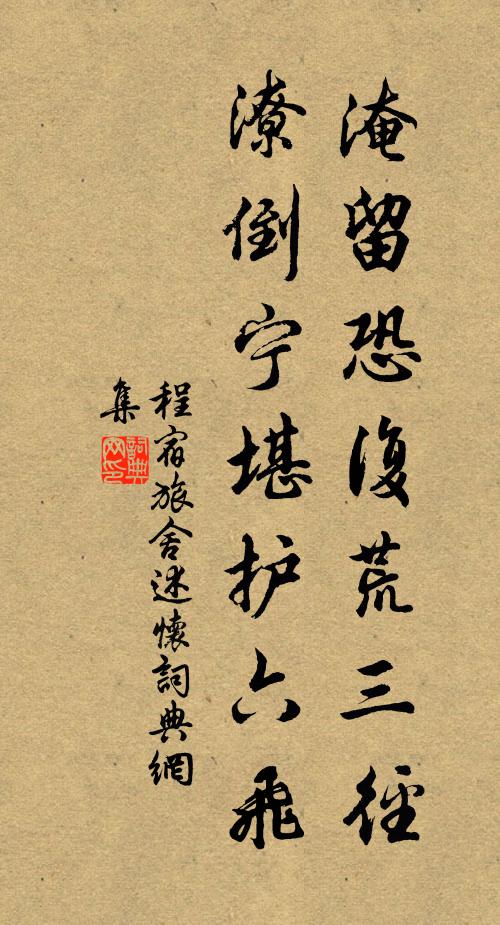 淹留恐復荒三徑
潦倒宁堪护六飛
程宿旅舍述懷詞典網
集
詞典
网印